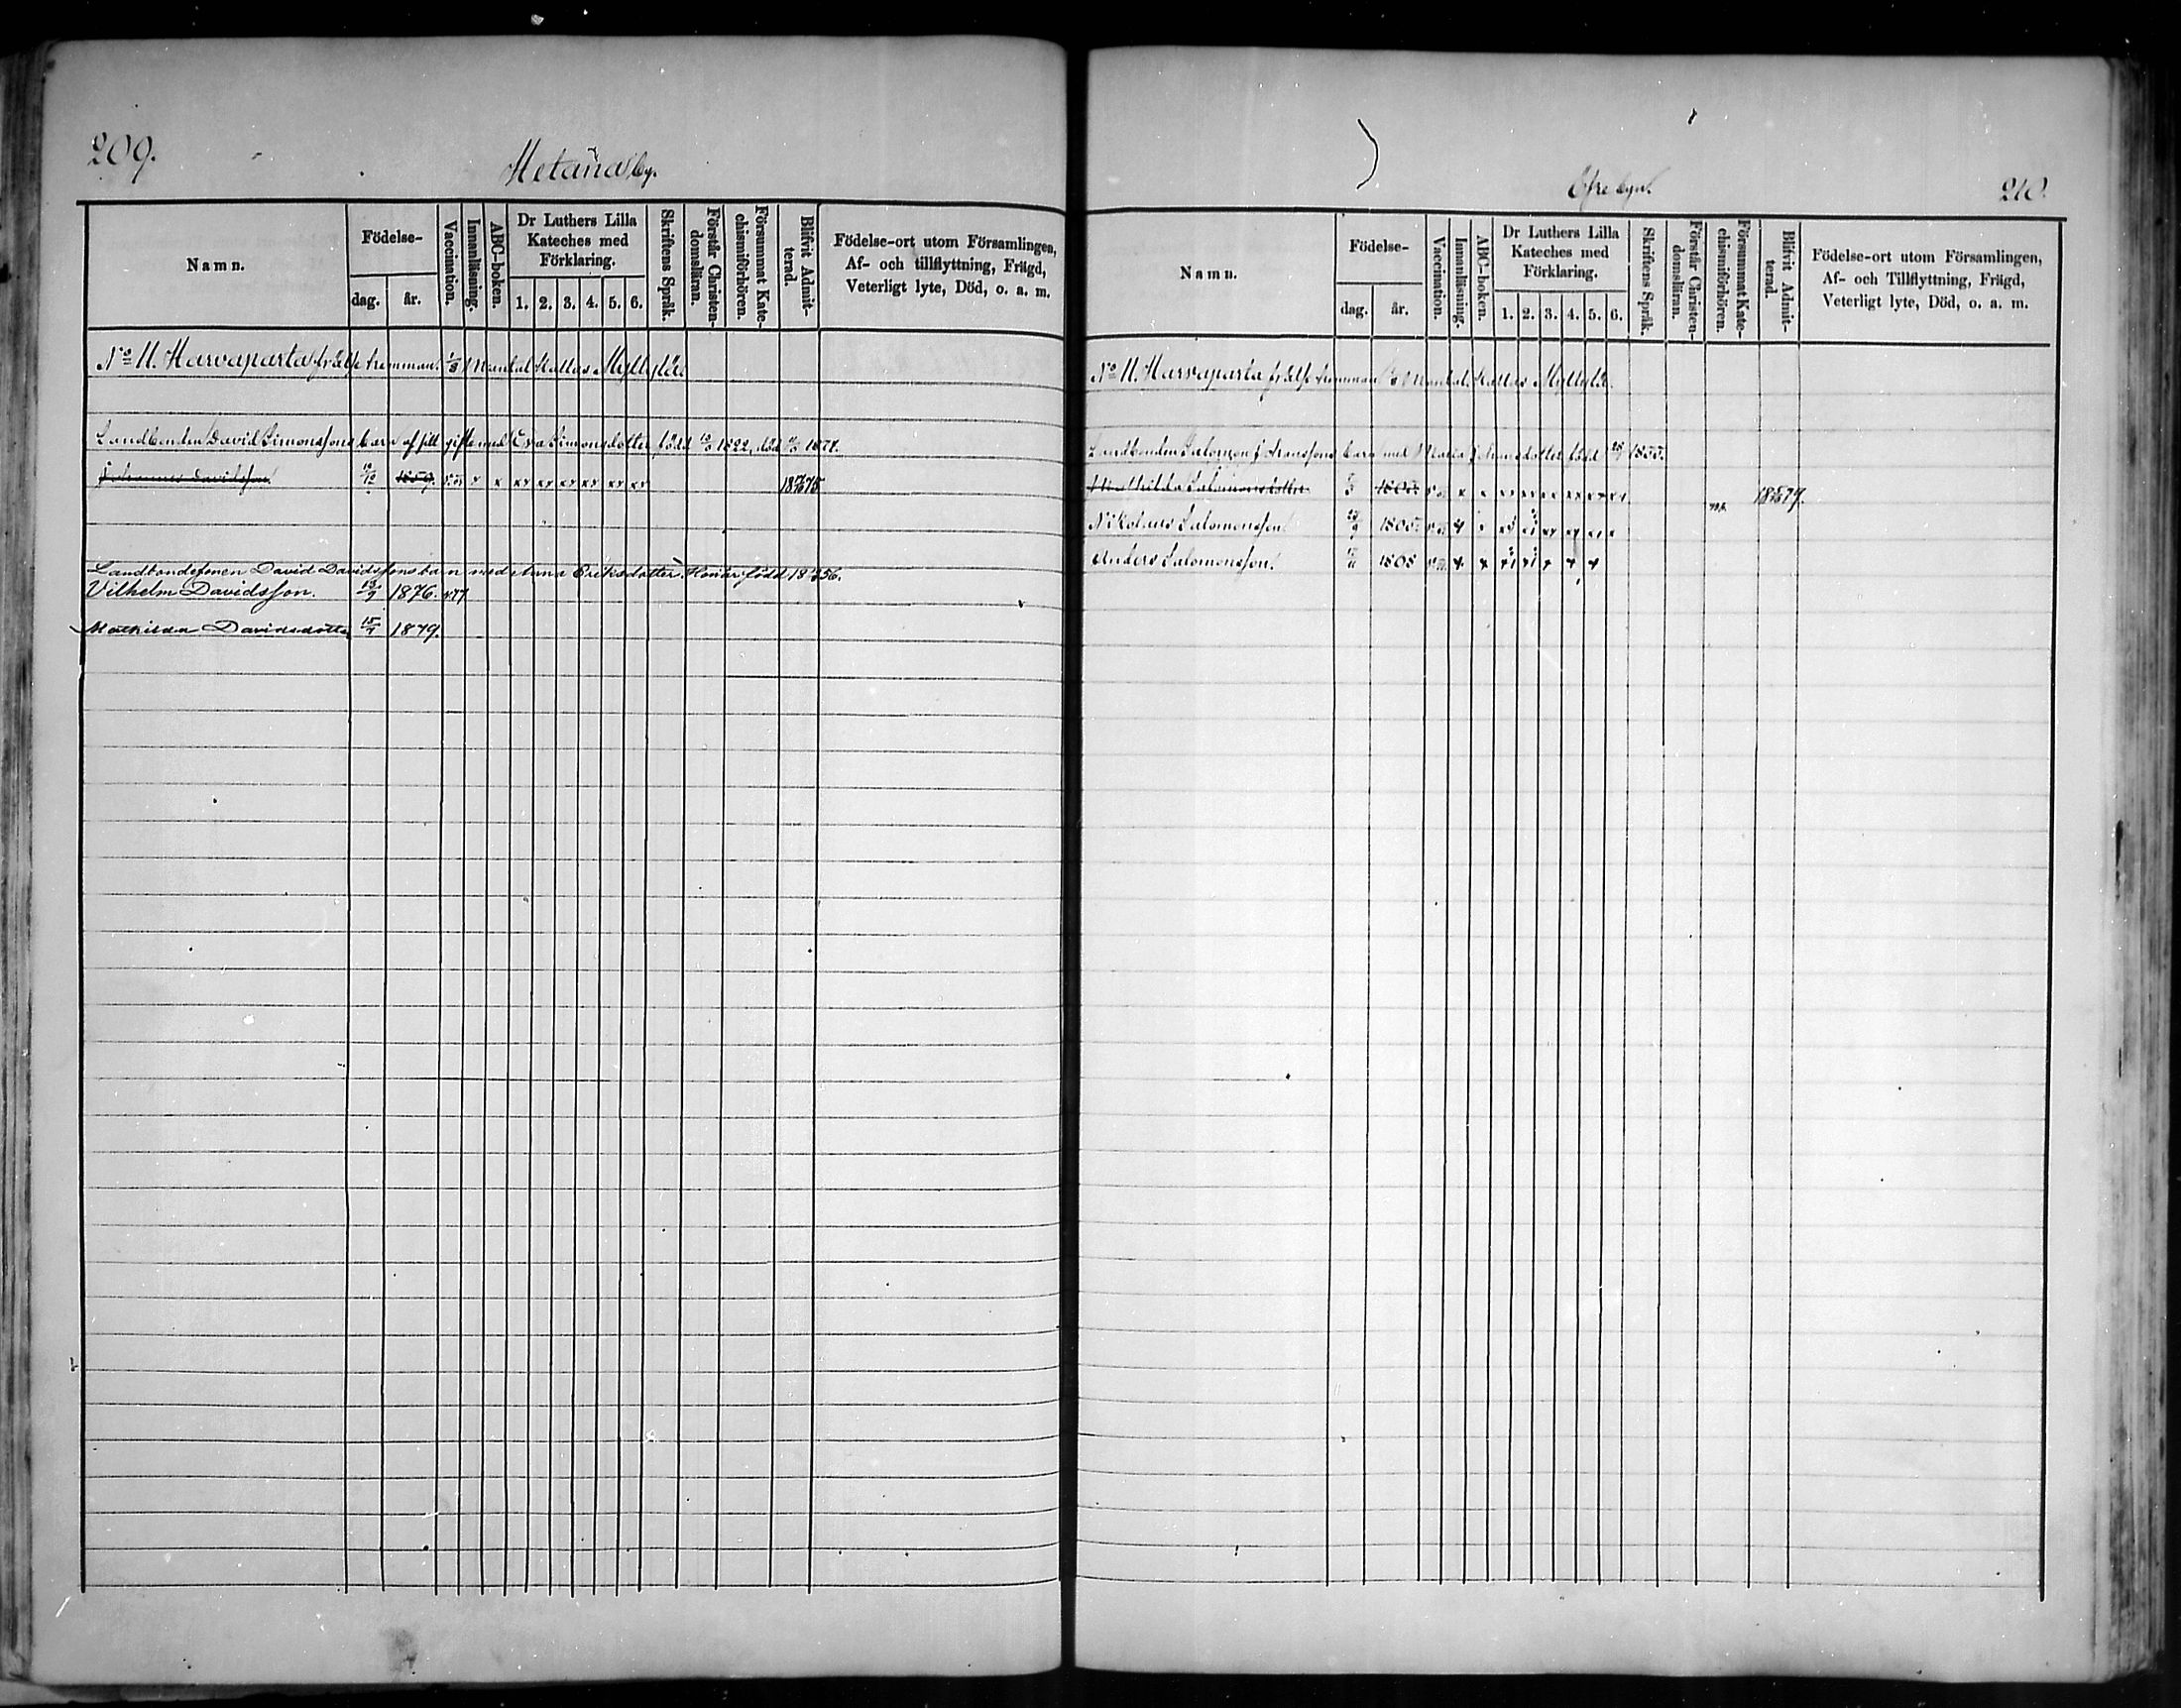 209.
Metäna by.
Namn.
Födelse-
dag. år.
Vaccination.
Innanläsning.
ABC-boken.
Dr Luthers Lilla
Kateches med
Förklaring.
1. 2. 3. 4. 5. 6.
Skriftens Språk.
Förstår Christen-
domsläran.
Försummat Kate-
chismiförhören.
Blifvit Admit-
terad.
Födelse-ort utom Församlingen,
Af- och tillflyttning, Frägd,
Veterligt lyte, Död, o. a. m.
No 11. Harvaparta frälse hemman. 1/8 Mantal kallas Myllylä.
Landbonden David Simonssons barn af sitt gifte med Eva Simonsdotter född 1822, död 1874.
Johannes Davidsson. 1859. x x xx xx xx xx xx xx 1875
Landbondesonen David Davidssons barn med Anna Eriksdotter född 1856.
Vilhelm Davidsson. 13/9 1876. v.77
Mathilda Davidsdotter 15/7 1879.
Öfre byn.
210.
Namn.
Födelse-
dag. år.
Vaccination.
Innanläsning.
ABC-boken.
Dr Luthers Lilla
Kateches med
Förklaring.
1. 2. 3. 4. 5. 6.
Skriftens Språk.
Förstår Christen-
domsläran.
Försummat Kate-
chismiförhören.
Blifvit Admit-
terad.
Födelse-ort utom Församlingen,
Af- och Tillflyttning, Frägd,
Veterligt lyte, Död, o. a. m.
No 11. Harvaparta frälse hemman Mantal. Kallas Myllylä.
Landbonden Salomon Johanssons barn med Maria född
Salomonsdotter 1879.
Nikolaus Salomonsson.
Anders Salomonsson.